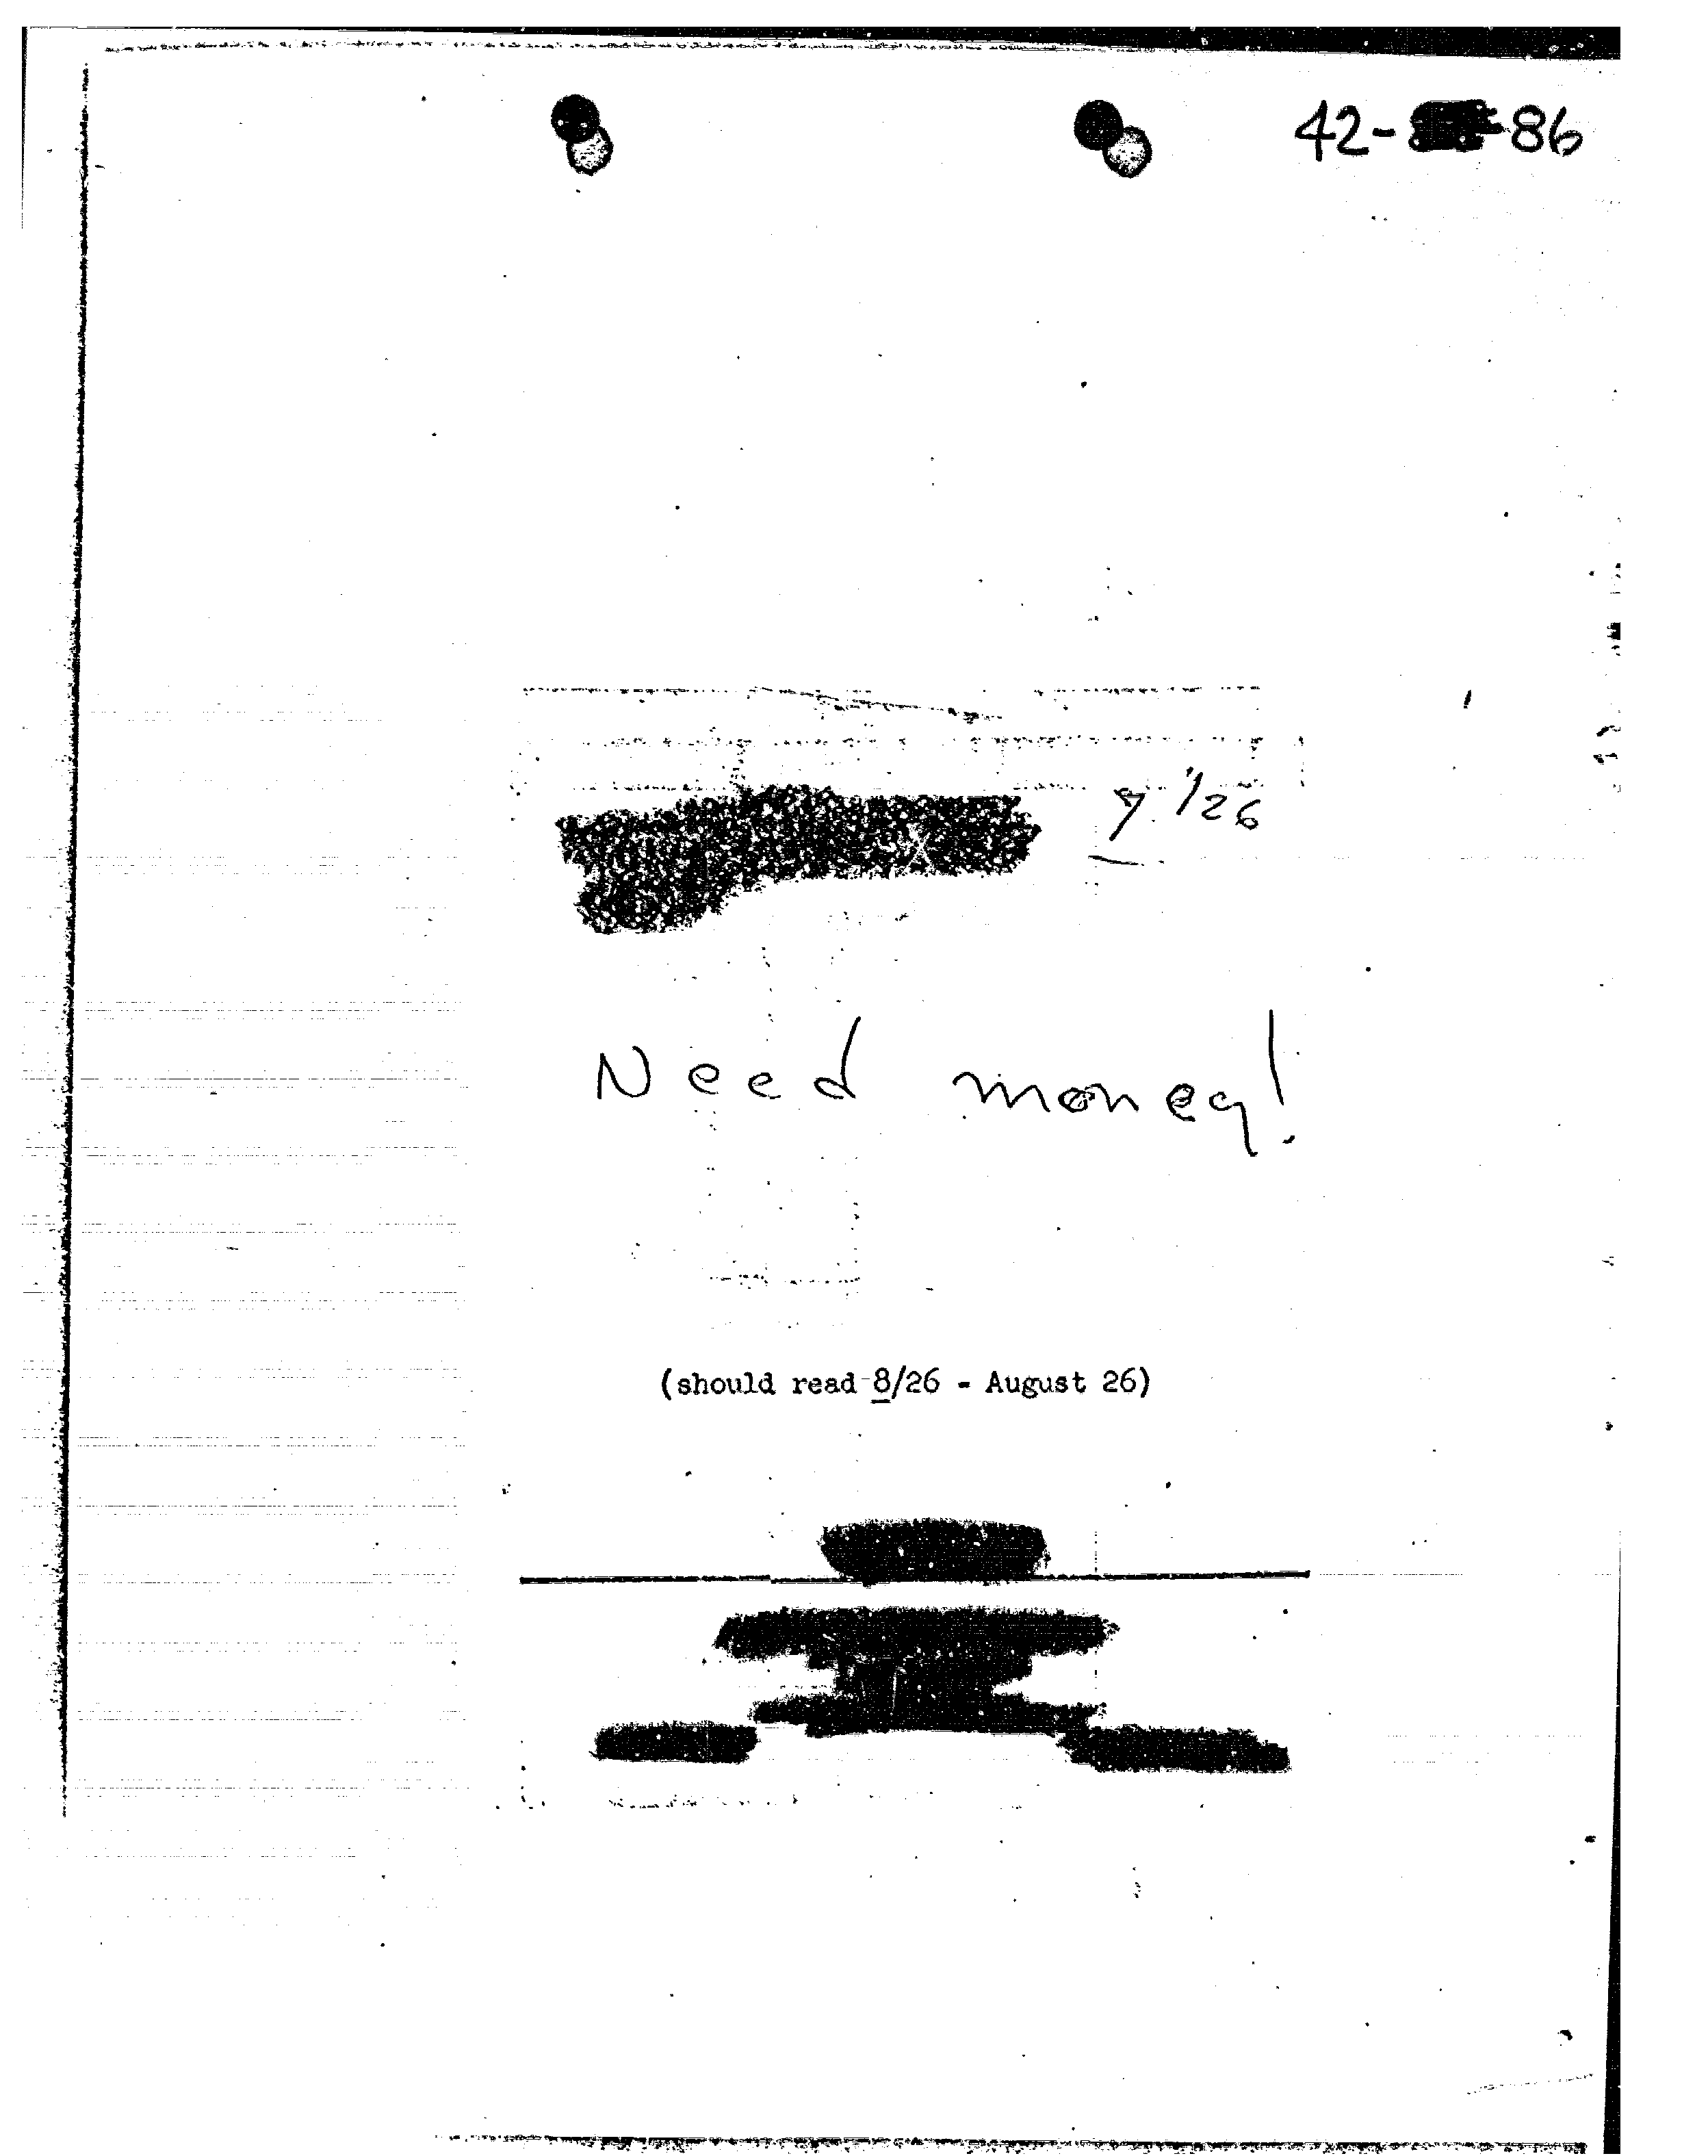 42- 86
7 1/26
Need money!
(should read 8/26 - August 26)